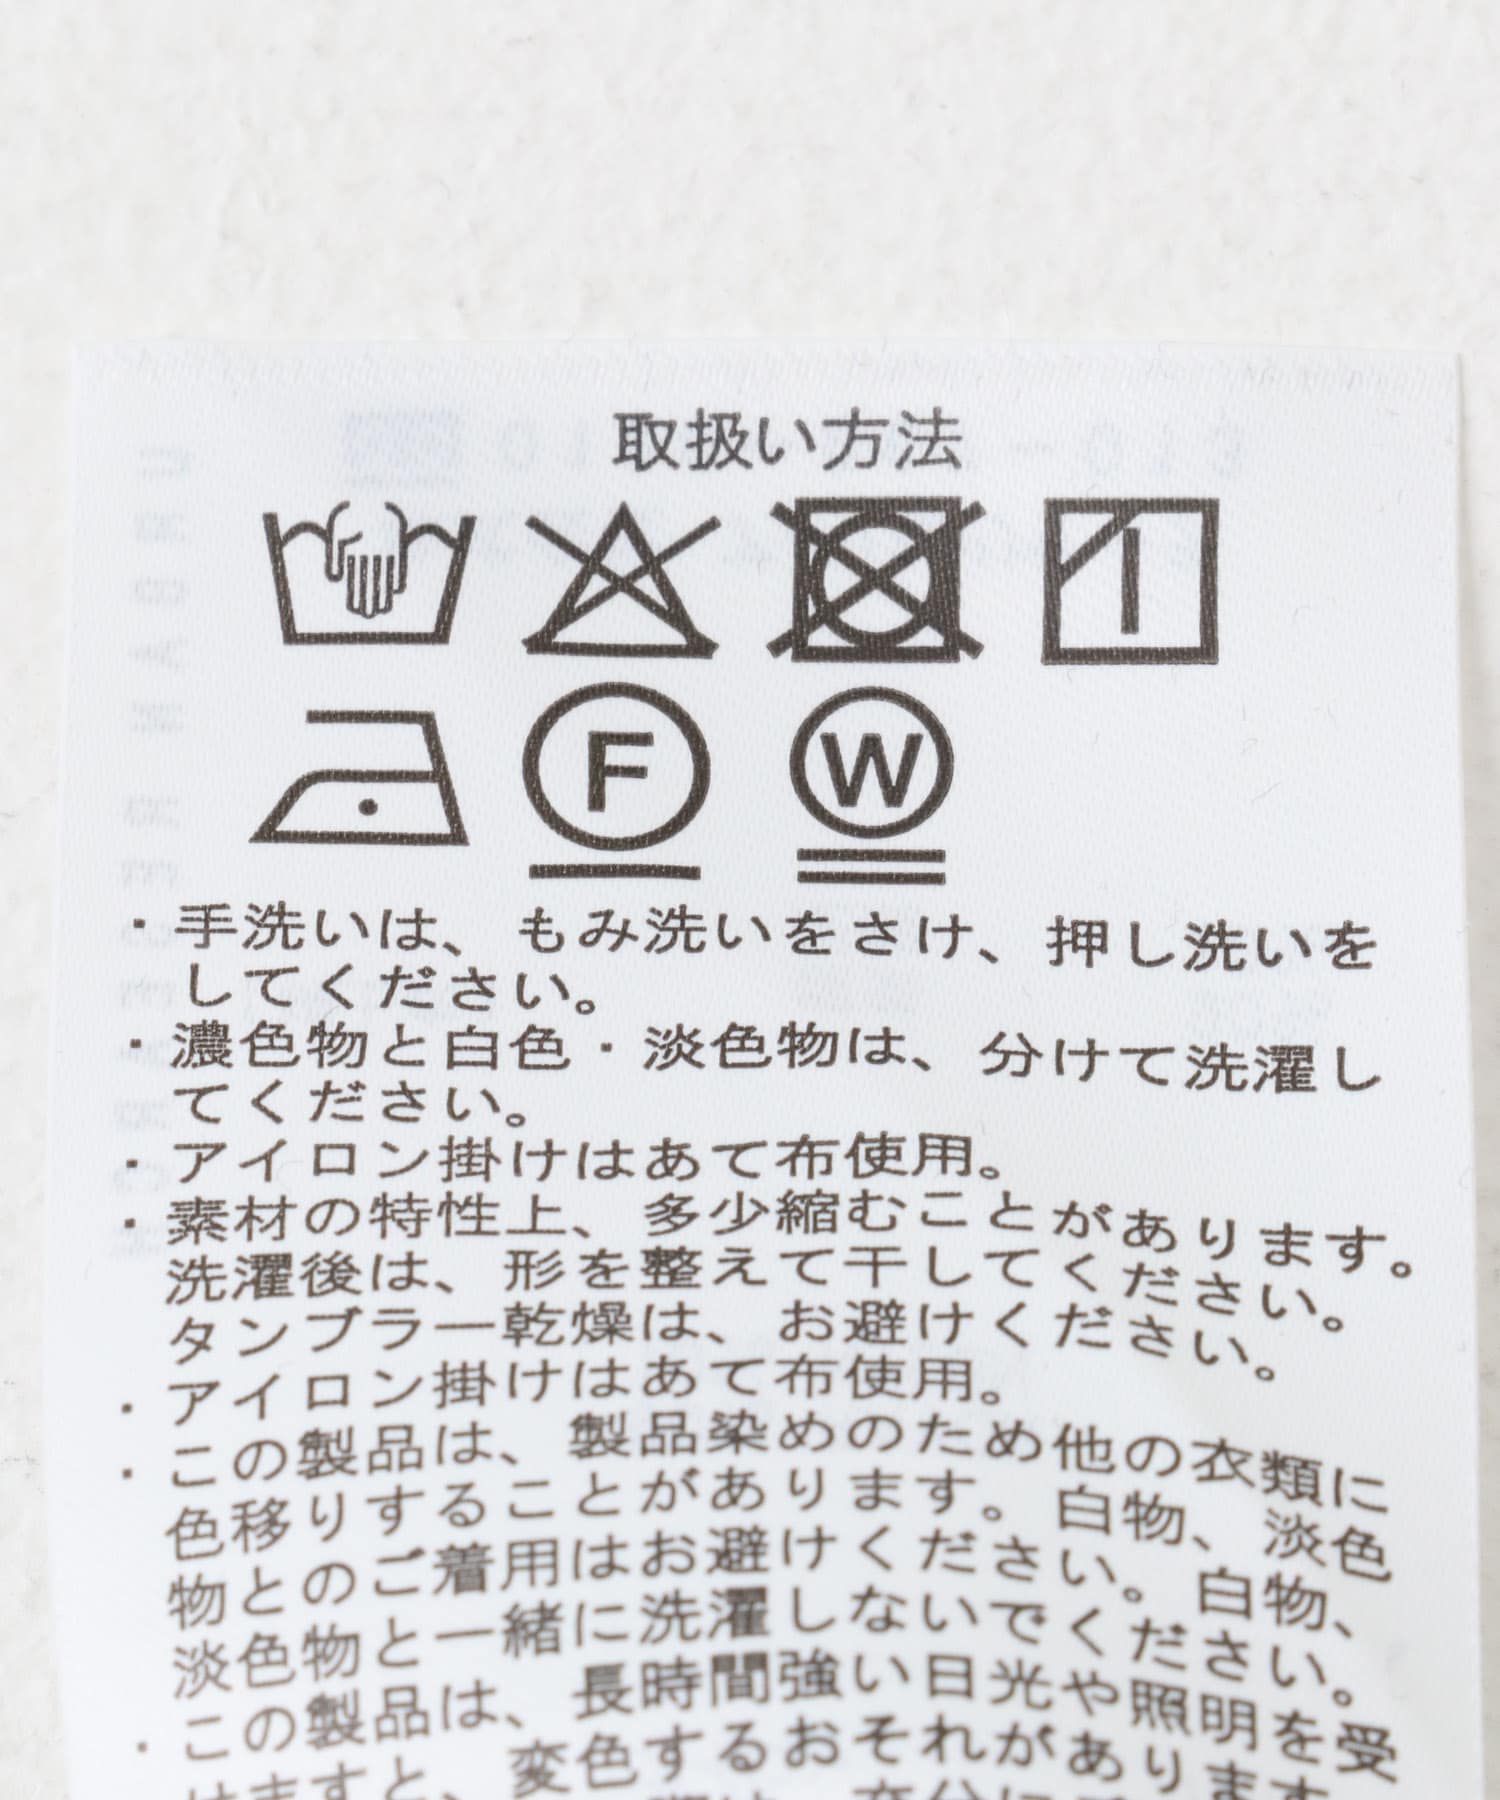 取扱い方法
F W
・手洗いは、もみ洗いをさけ、押し洗いを
してください。
・濃色物と白色・淡色物は、分けて洗濯し
てください。
・アイロン掛けはあて布使用。
・素材の特性上、多少縮むことがあります。
洗濯後は、形を整えて干してください。
タンブラー乾燥は、お避けください。
・アイロン掛けはあて布使用。
・この製品は、製品染めのため他の衣類に
色移りすることがあります。白物、淡色
物とのご着用はお避けください。白物、
淡色物と一緒に洗濯しないでください。
・この製品は、長時間強い日光や照明を受
けますと、変色するおそれがあります